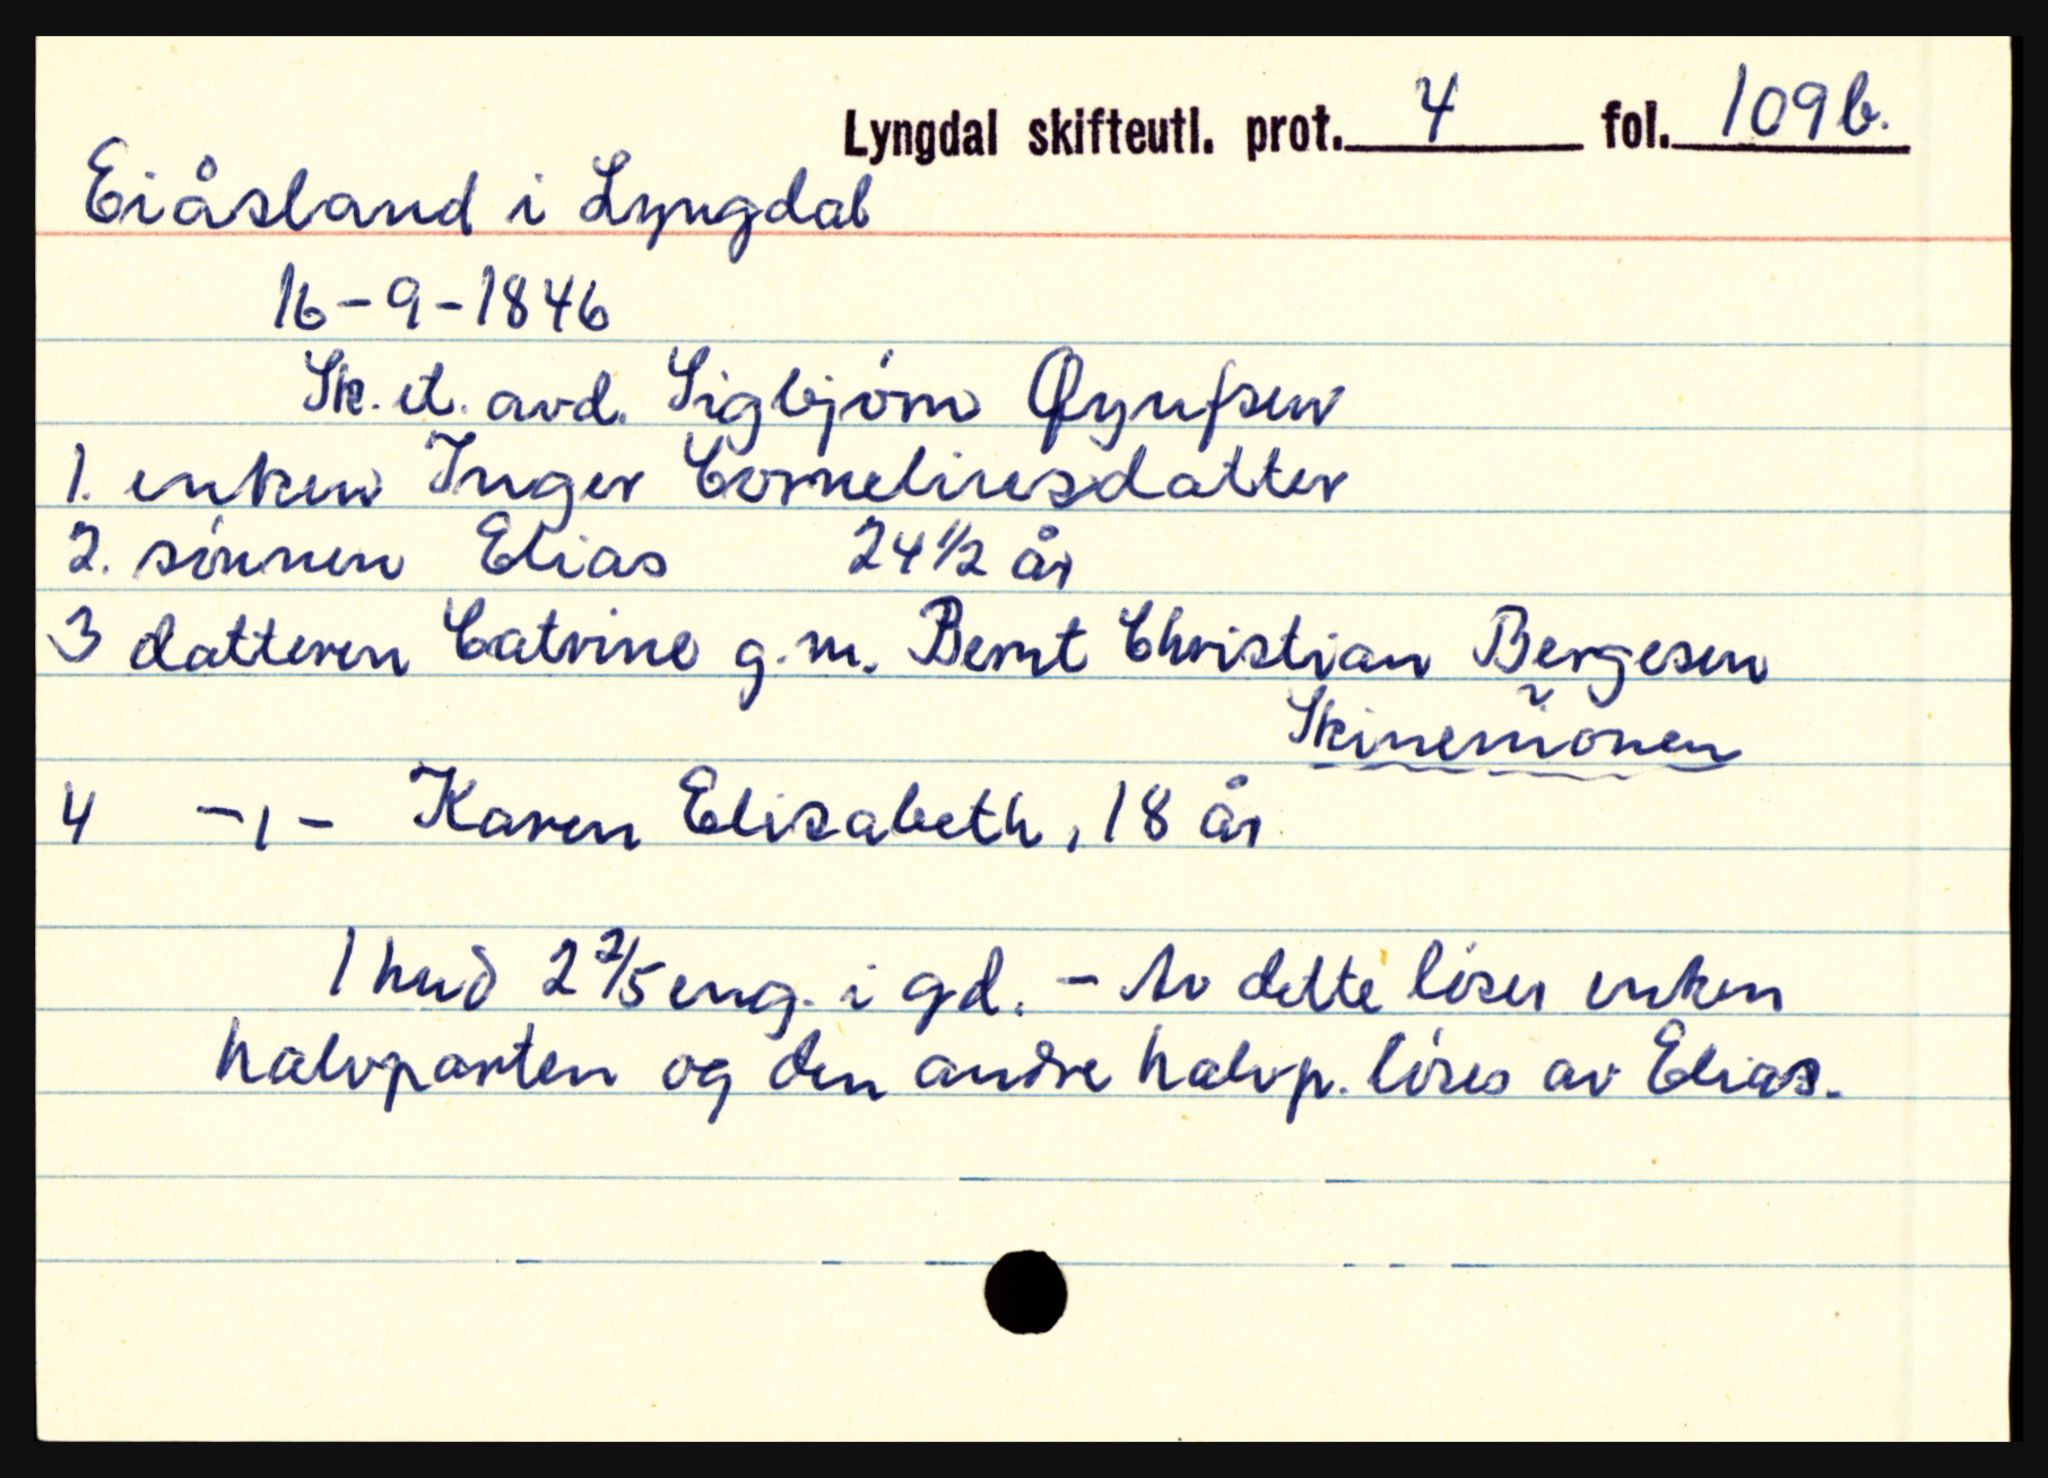 Lyngdal skifteutl. prot. 4 fol. 109b.
Eiåsland i Lyngdal
16-9-1846
Sk. et. avd. Sigbjørn Øynfsen
1. enken Inger Corneliusdatter
2. sønnen Elias 24 1/2 år
3 datteren Catrine g.m. Bernt Christian Bergesen
Skinemonen
4 -,- Karen Elisabeth, 18 år
1 hud 2 2/5 eng. i gd. - Av dette løser enken
halvparten og den andre halvp. løses av Elias.